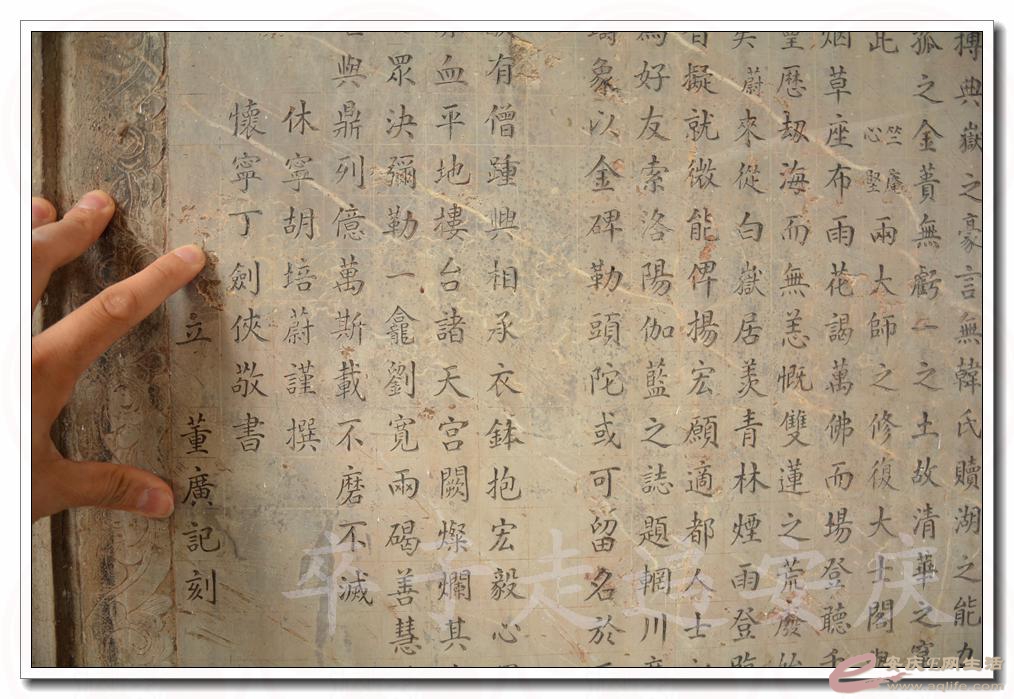 搏典嶽之豪言無韓氏贖湖之能力
孤之金蕢無虧一之土故清華之
此竺庵心堅兩大師之修復大士閣
烟草座布雨花謁萬佛而場登聽
歷劫海而無恙慨雙蓮之荒廢
矣蔚來從白嶽居羨青林煙雨登臨
擬就微能俾揚宏願適都人士
為好友索洛陽伽藍之誌題輞川
象以金碑勒頭陀或可留名於
有僧踵興相承衣鉢抱宏毅心
血平地樓台諸天宮闕燦爛其
眾決彌勒一龕劉寬兩碣善慧
與鼎列億萬斯載不磨不滅
休寧胡培蔚謹撰
懷寧丁劍俠敬書
立 董廣記刻
卒子走过安庆
安庆E网生活
www.aqlife.com